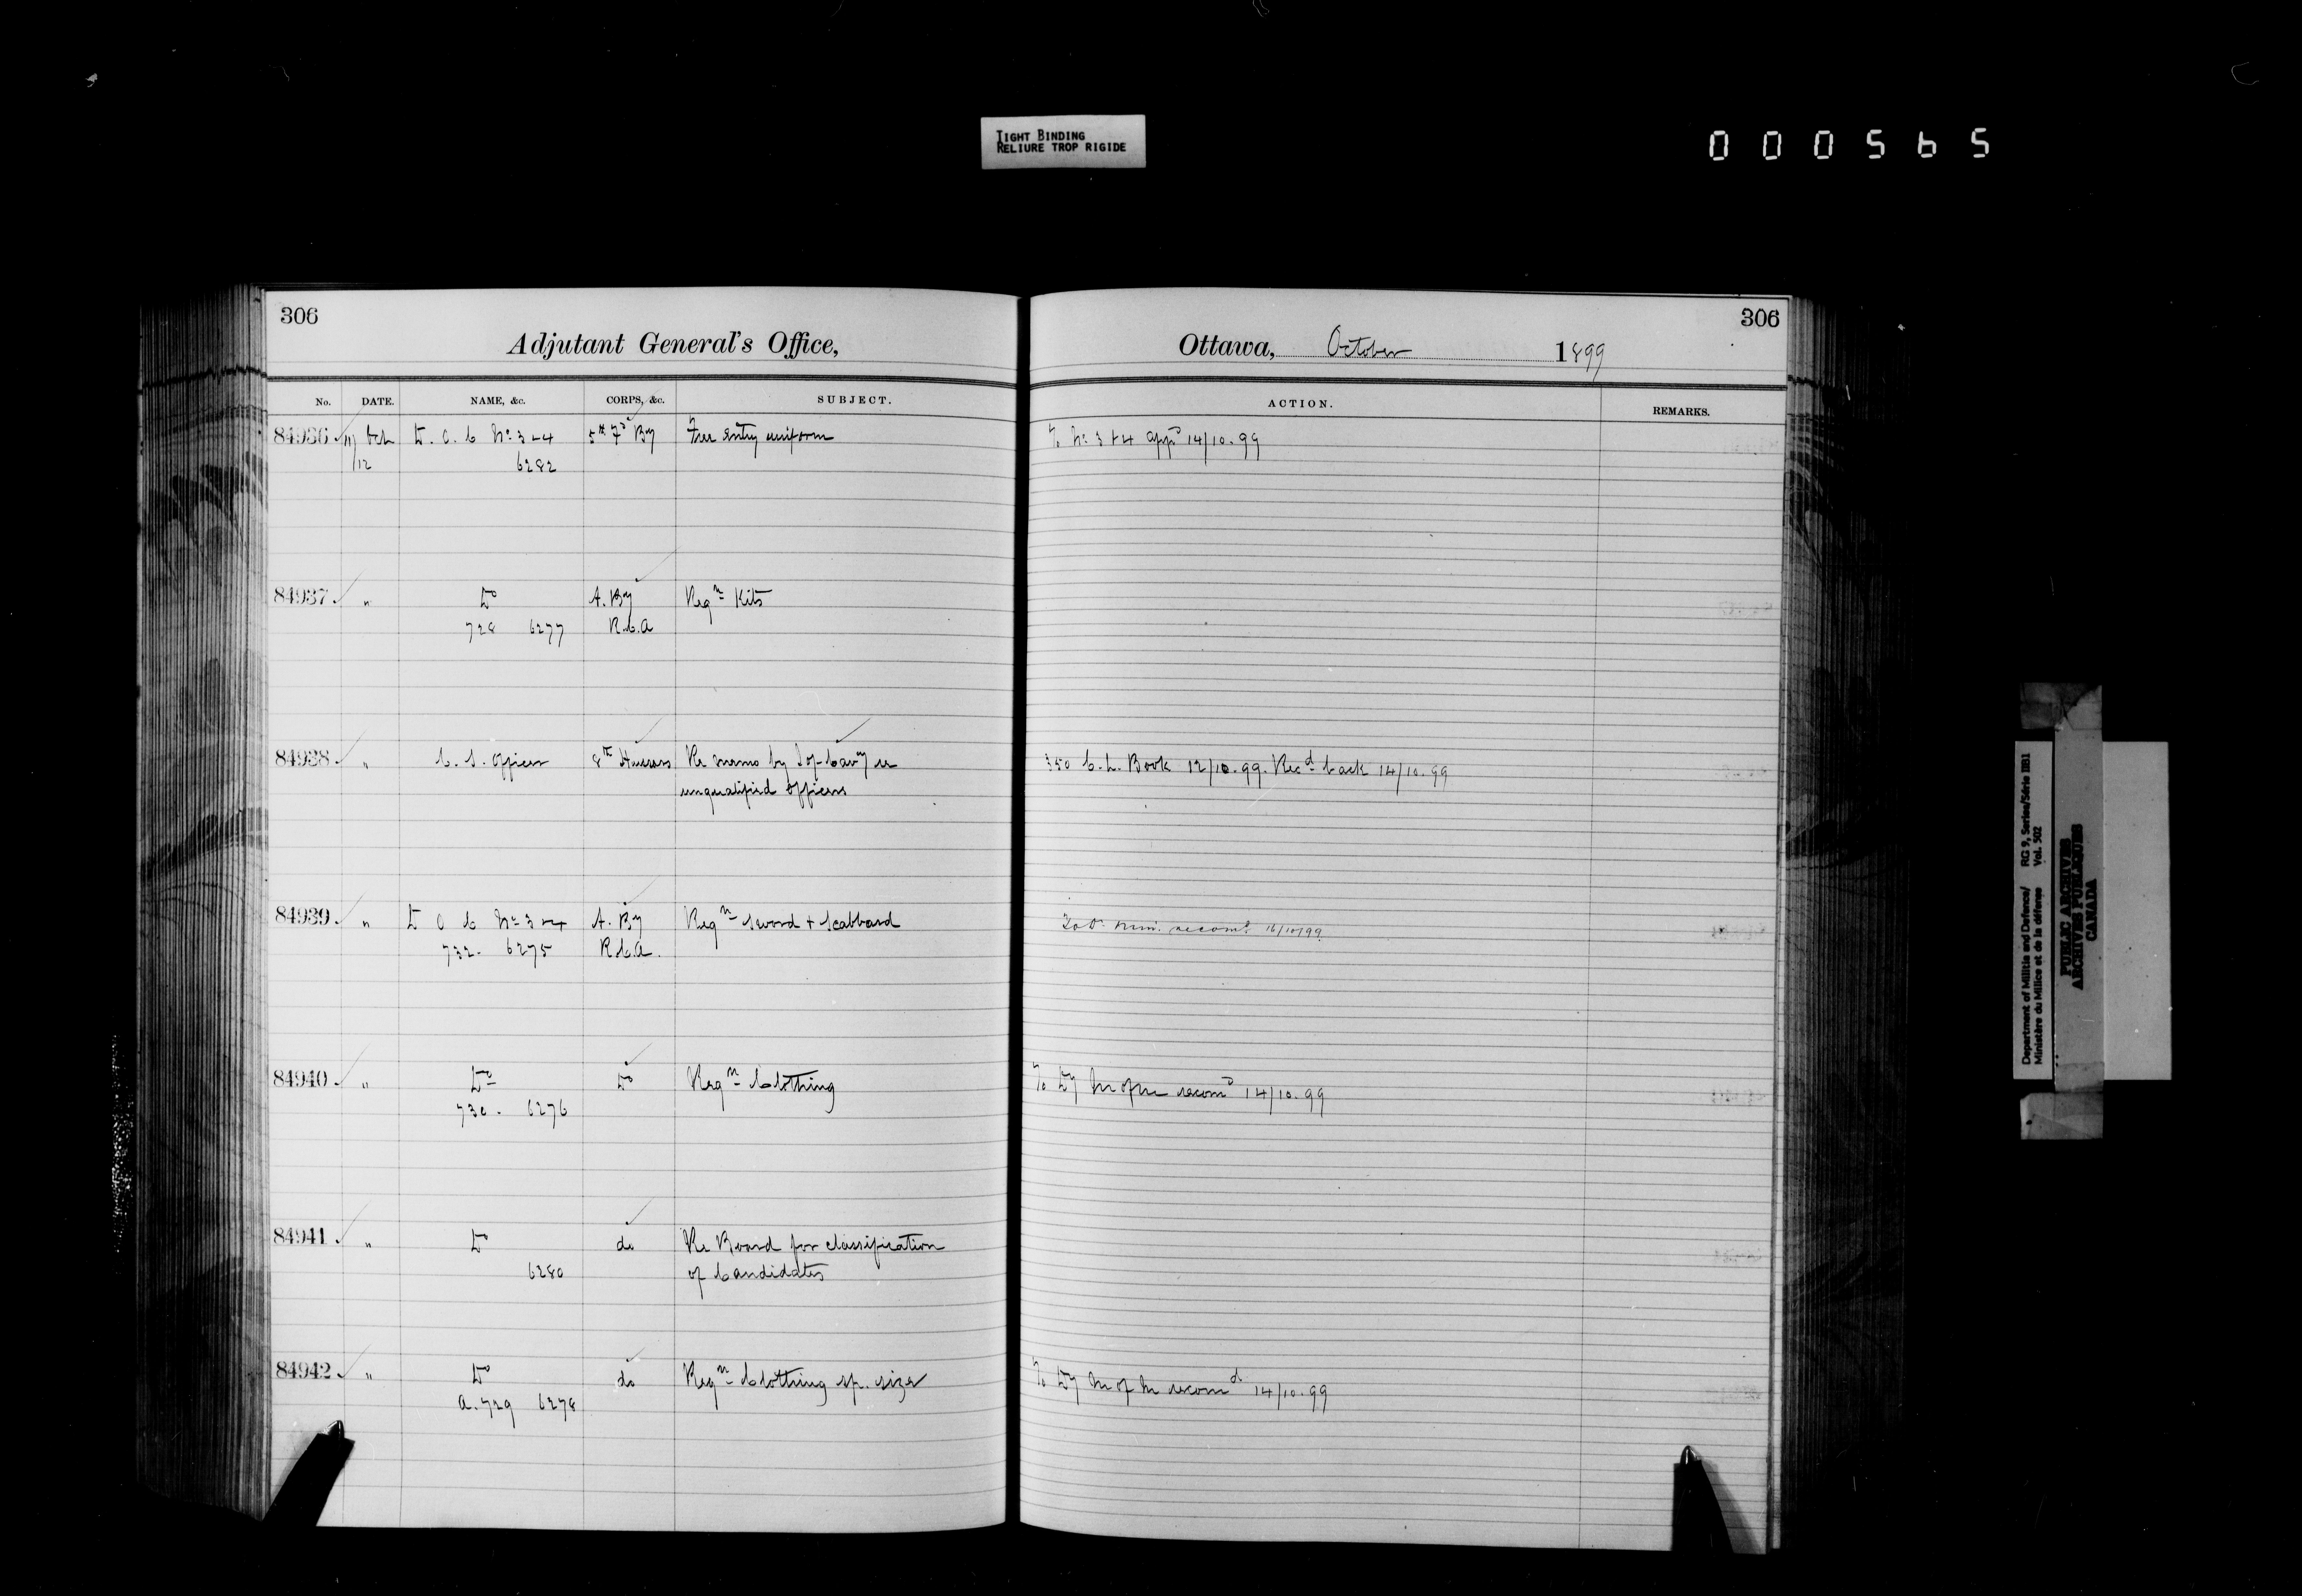 TIGHT BINDING
RELIURE TROP RIGIDE
000565
306
Adjutant General's Office,
No. DATE. NAME, &c. CORPS, &c. SUBJECT.
84936 11/12 Oct D. O. C. No 3 & 4 5th Fd By Free entry uniform
6282
84937 " Do A. By Reqn Kits
728 6277 R.C.A
84938 " C. S. Officer 8th Hussars Re memo by I of Cavy re
unqualified Officers
84939 " D O C No 3 & 4 A. By Reqn Sword + Scabbard
732. 6275 R.C.A.
84940 " Do Do Reqn Clothing
730. 6276
84941 " Do do Re Board for classification
6280 of Candidates
84942 " Do do Reqn Clothing sp. sizes
A.729 6278
306
Ottawa, October 1899
ACTION. REMARKS.
To No 3 + 4 appd 14/10.99
350 C.L. Book 12/10.99. Recd back 14/10.99
recomd 16/10/99
To Dy M of M recomd 14/10.99
To Dy M of M recomd 14/10.99
Department of Militia and Defence/ RG 9, Series/Série IIB1
Ministère du Milice et de la défense Vol. 502
PUBLIC ARCHIVES
ARCHIVES PUBLIQUES
CANADA